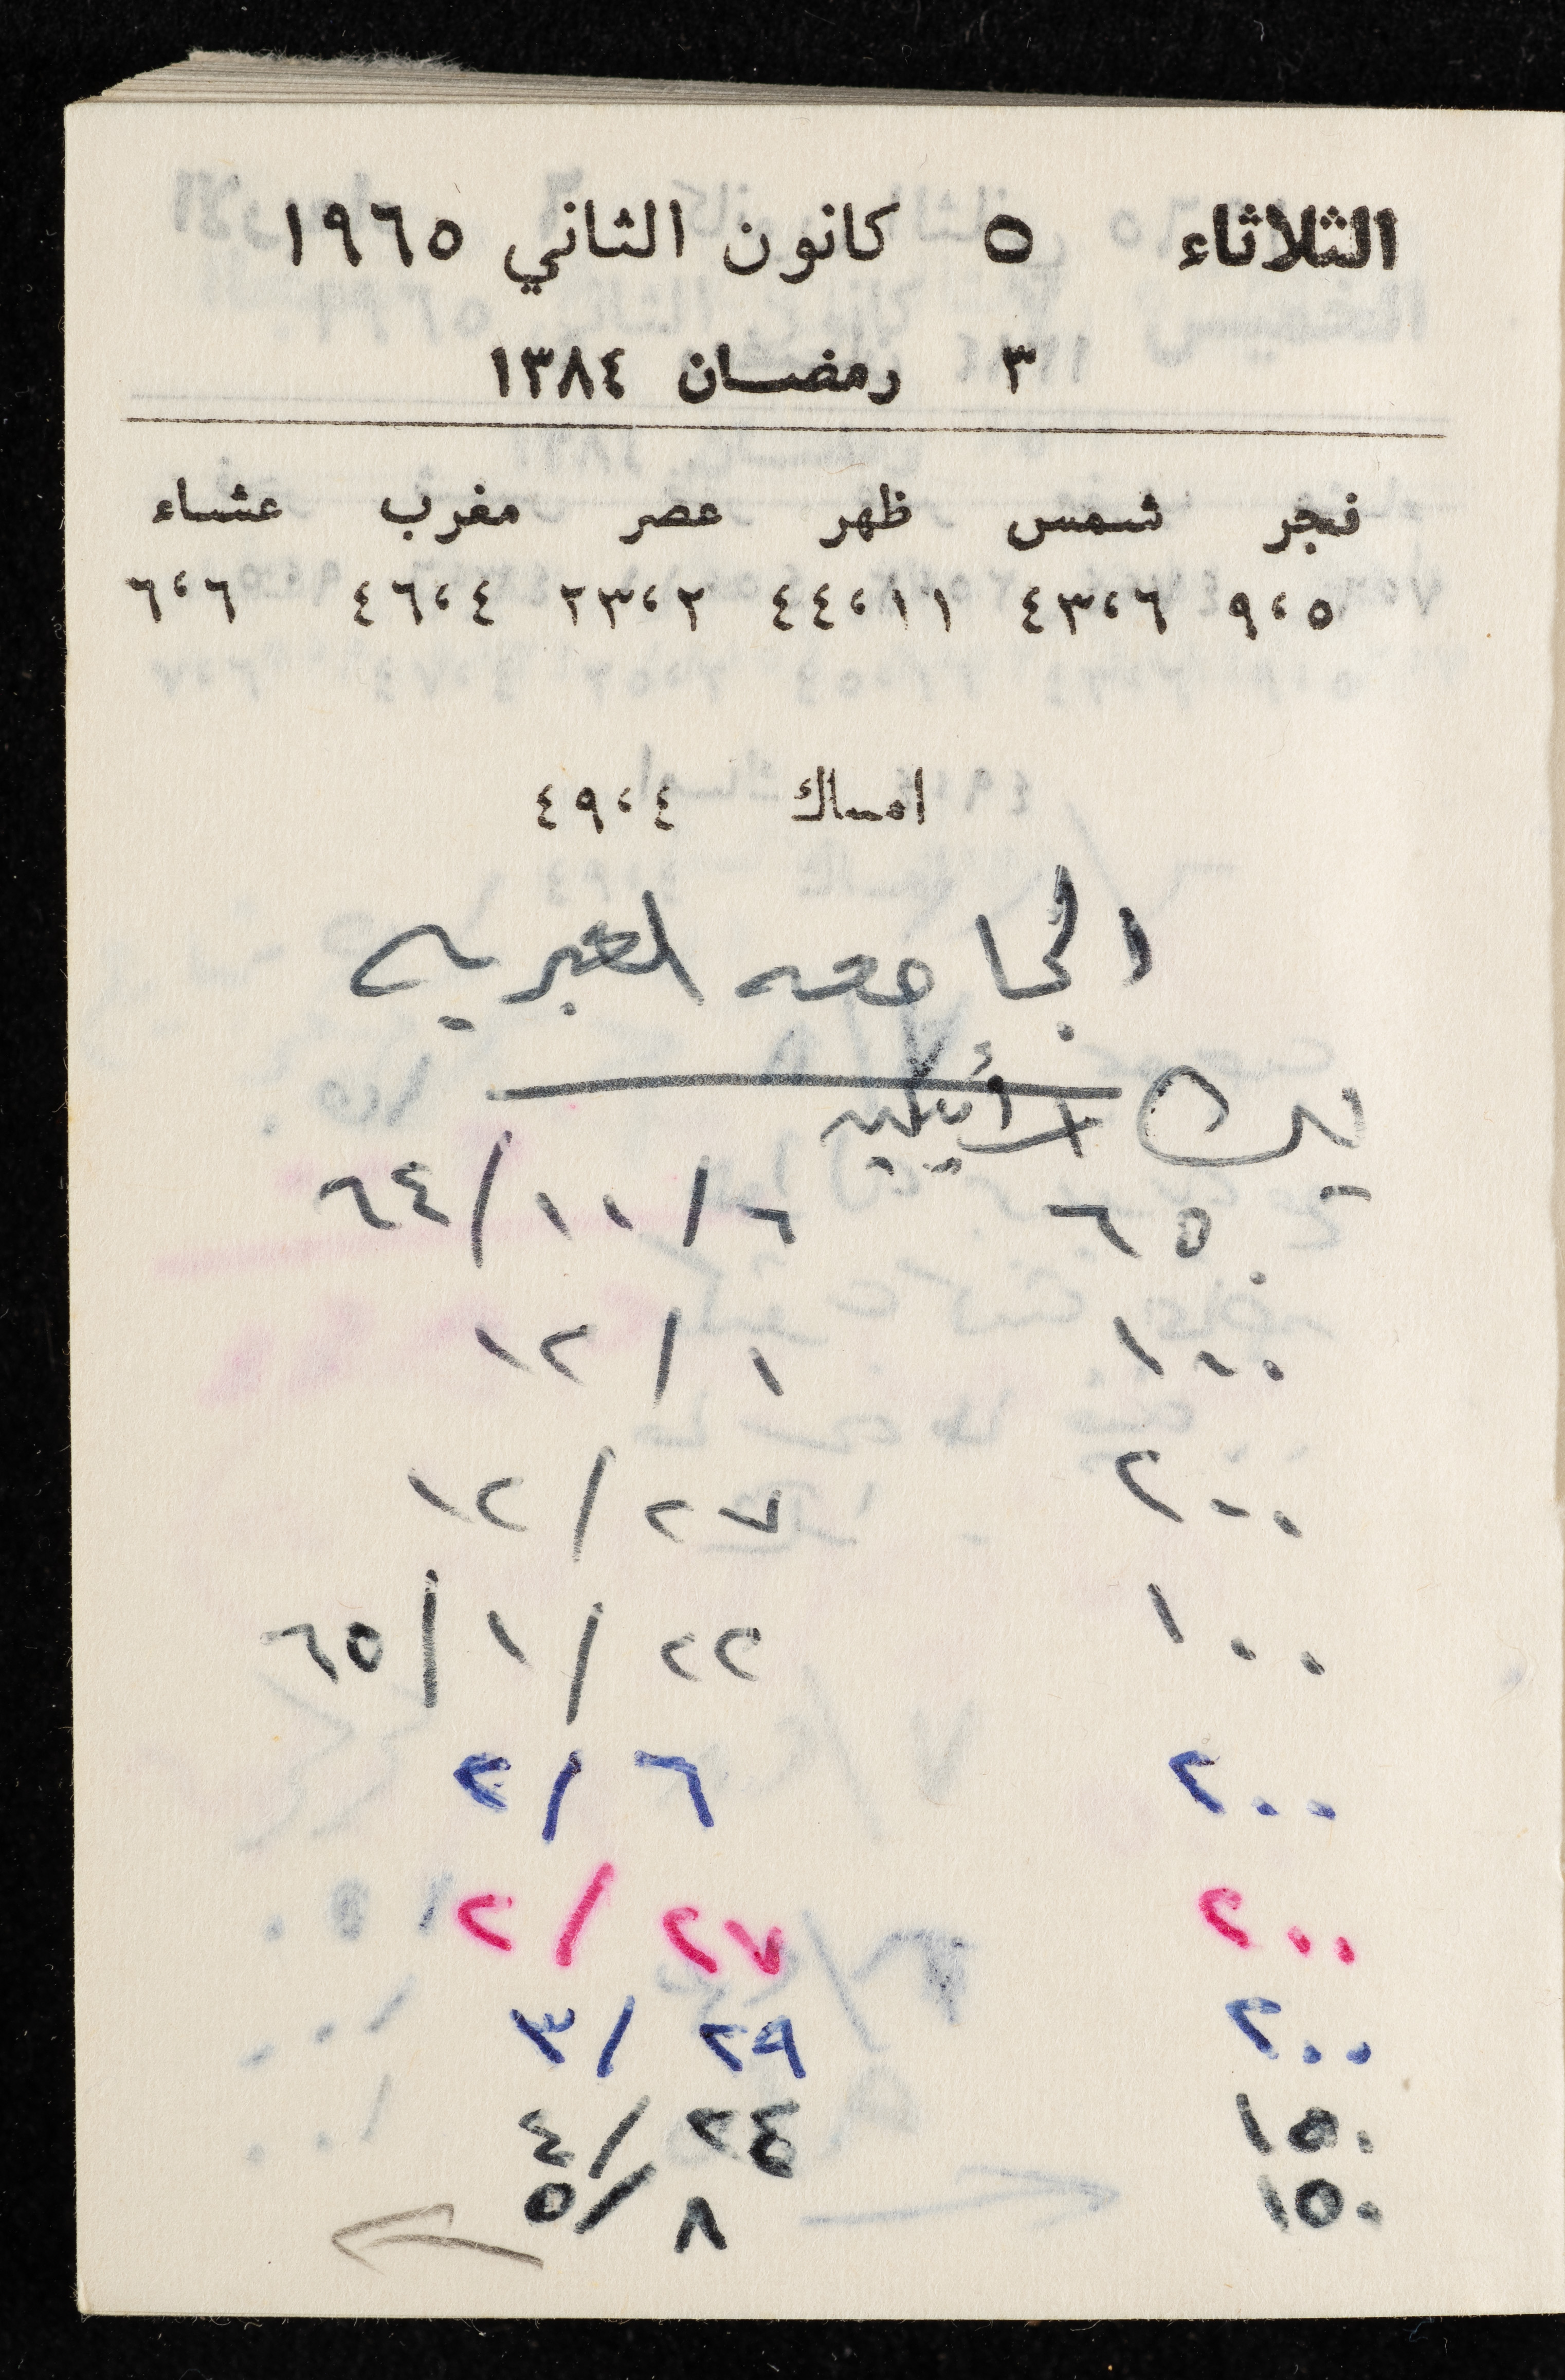 الثلاثاء ٥ كانون الثاني ١٩٦٥
٣ رمضان ١٣٨٤
فجر شمس ظهر عصر مغرب عشاء
٥،٩ ٦،٤٣ ١١،٤٤ ٢،٢٣ ٤،٤٦ ٦،٦
امساك ٤،٤٩
الجامعه العبريه
٦٥٠ ٦/١٠/٦٤
١٠٠ ١/١٢
٢٠٠ ٢٧/١٢
١٠٠ ٢٢/١/٦٥
٢٠٠ ٦/٢
٢٠٠ ٢٧/٢
٢٠٠ ٢٩/٣
١٥٠ ٢٤/٤
١٥٠ ٨/٥